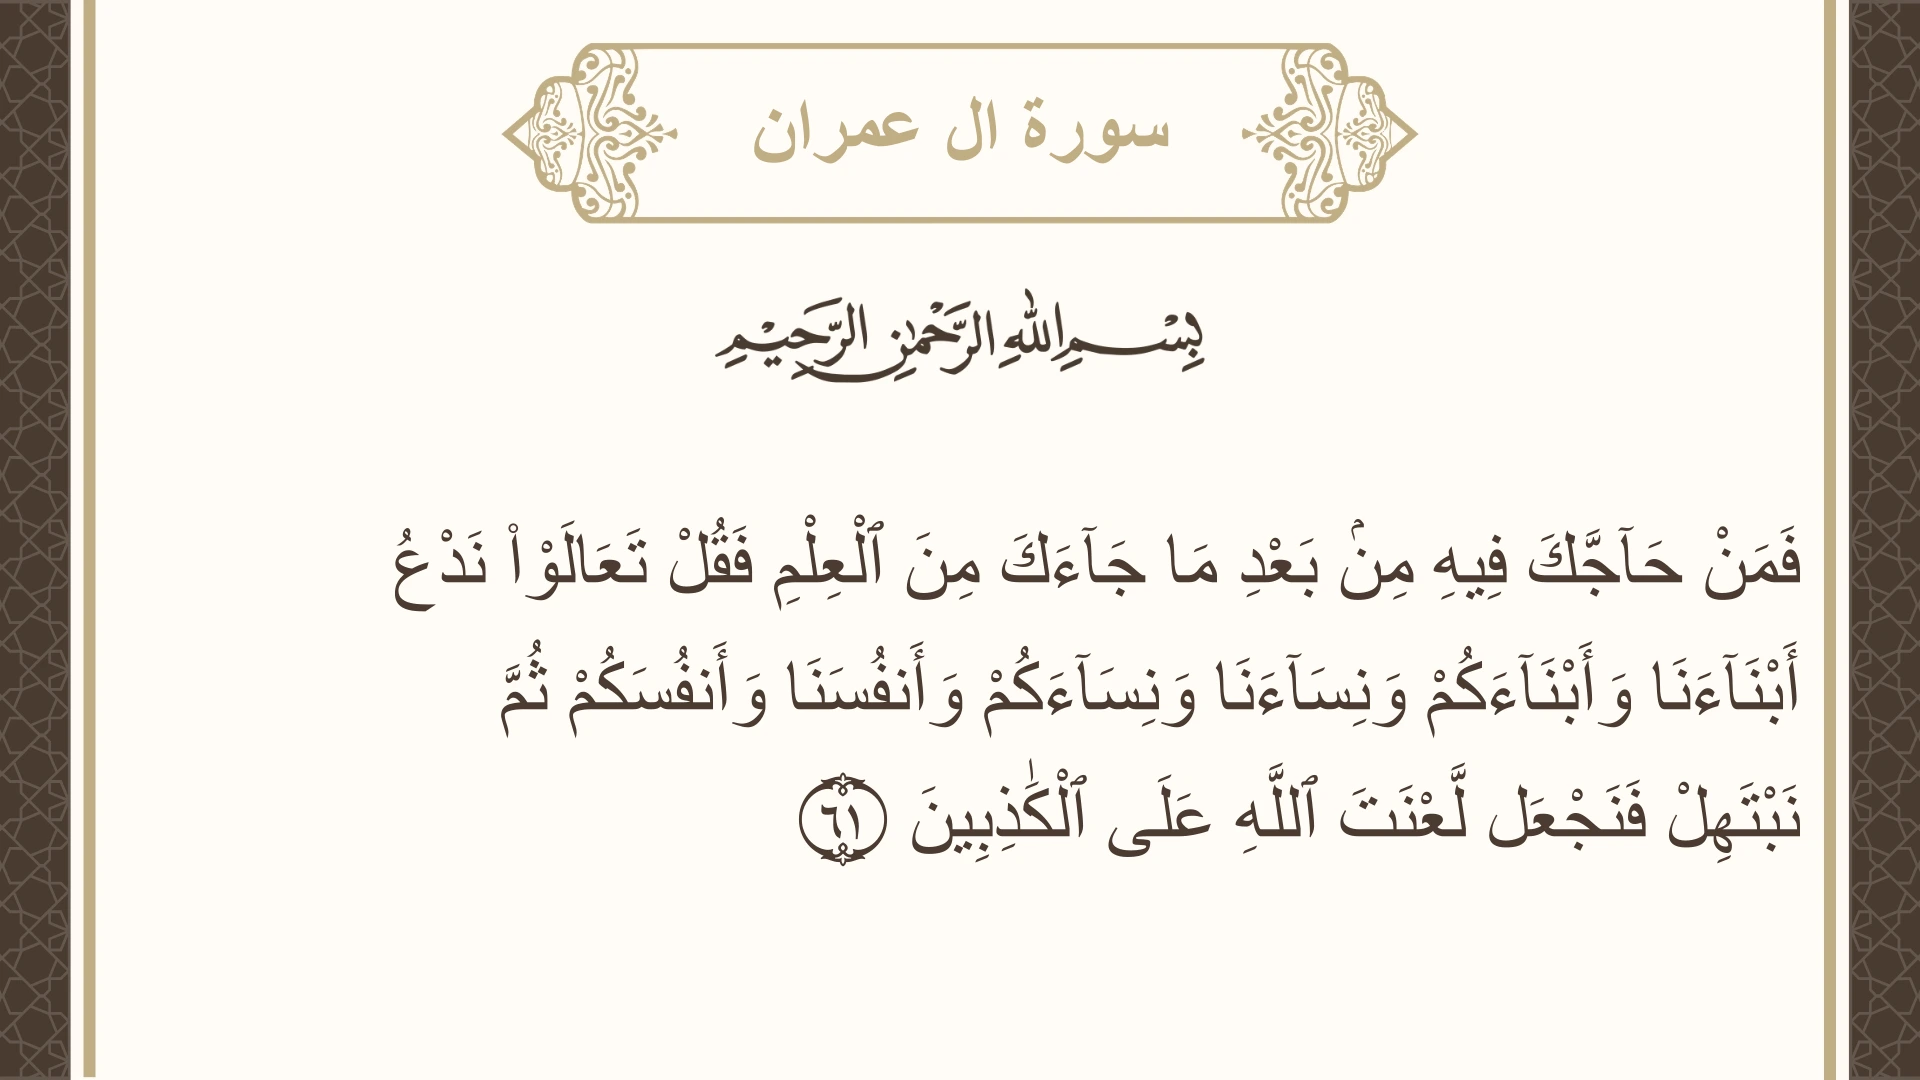 سورة ال عمران
بِسْمِ اللهِ الرَّحْمٰنِ الرَّحِيْمِ
فَمَنْ حَآجَّكَ فِيهِ مِنۢ بَعْدِ مَا جَآءَكَ مِنَ ٱلْعِلْمِ فَقُلْ تَعَالَوْا۟ نَدْعُ
أَبْنَآءَنَا وَأَبْنَآءَكُمْ وَنِسَآءَنَا وَنِسَآءَكُمْ وَأَنفُسَنَا وَأَنفُسَكُمْ ثُمَّ
نَبْتَهِلْ فَنَجْعَل لَّعْنَتَ ٱللَّهِ عَلَى ٱلْكَٰذِبِينَ ٦١